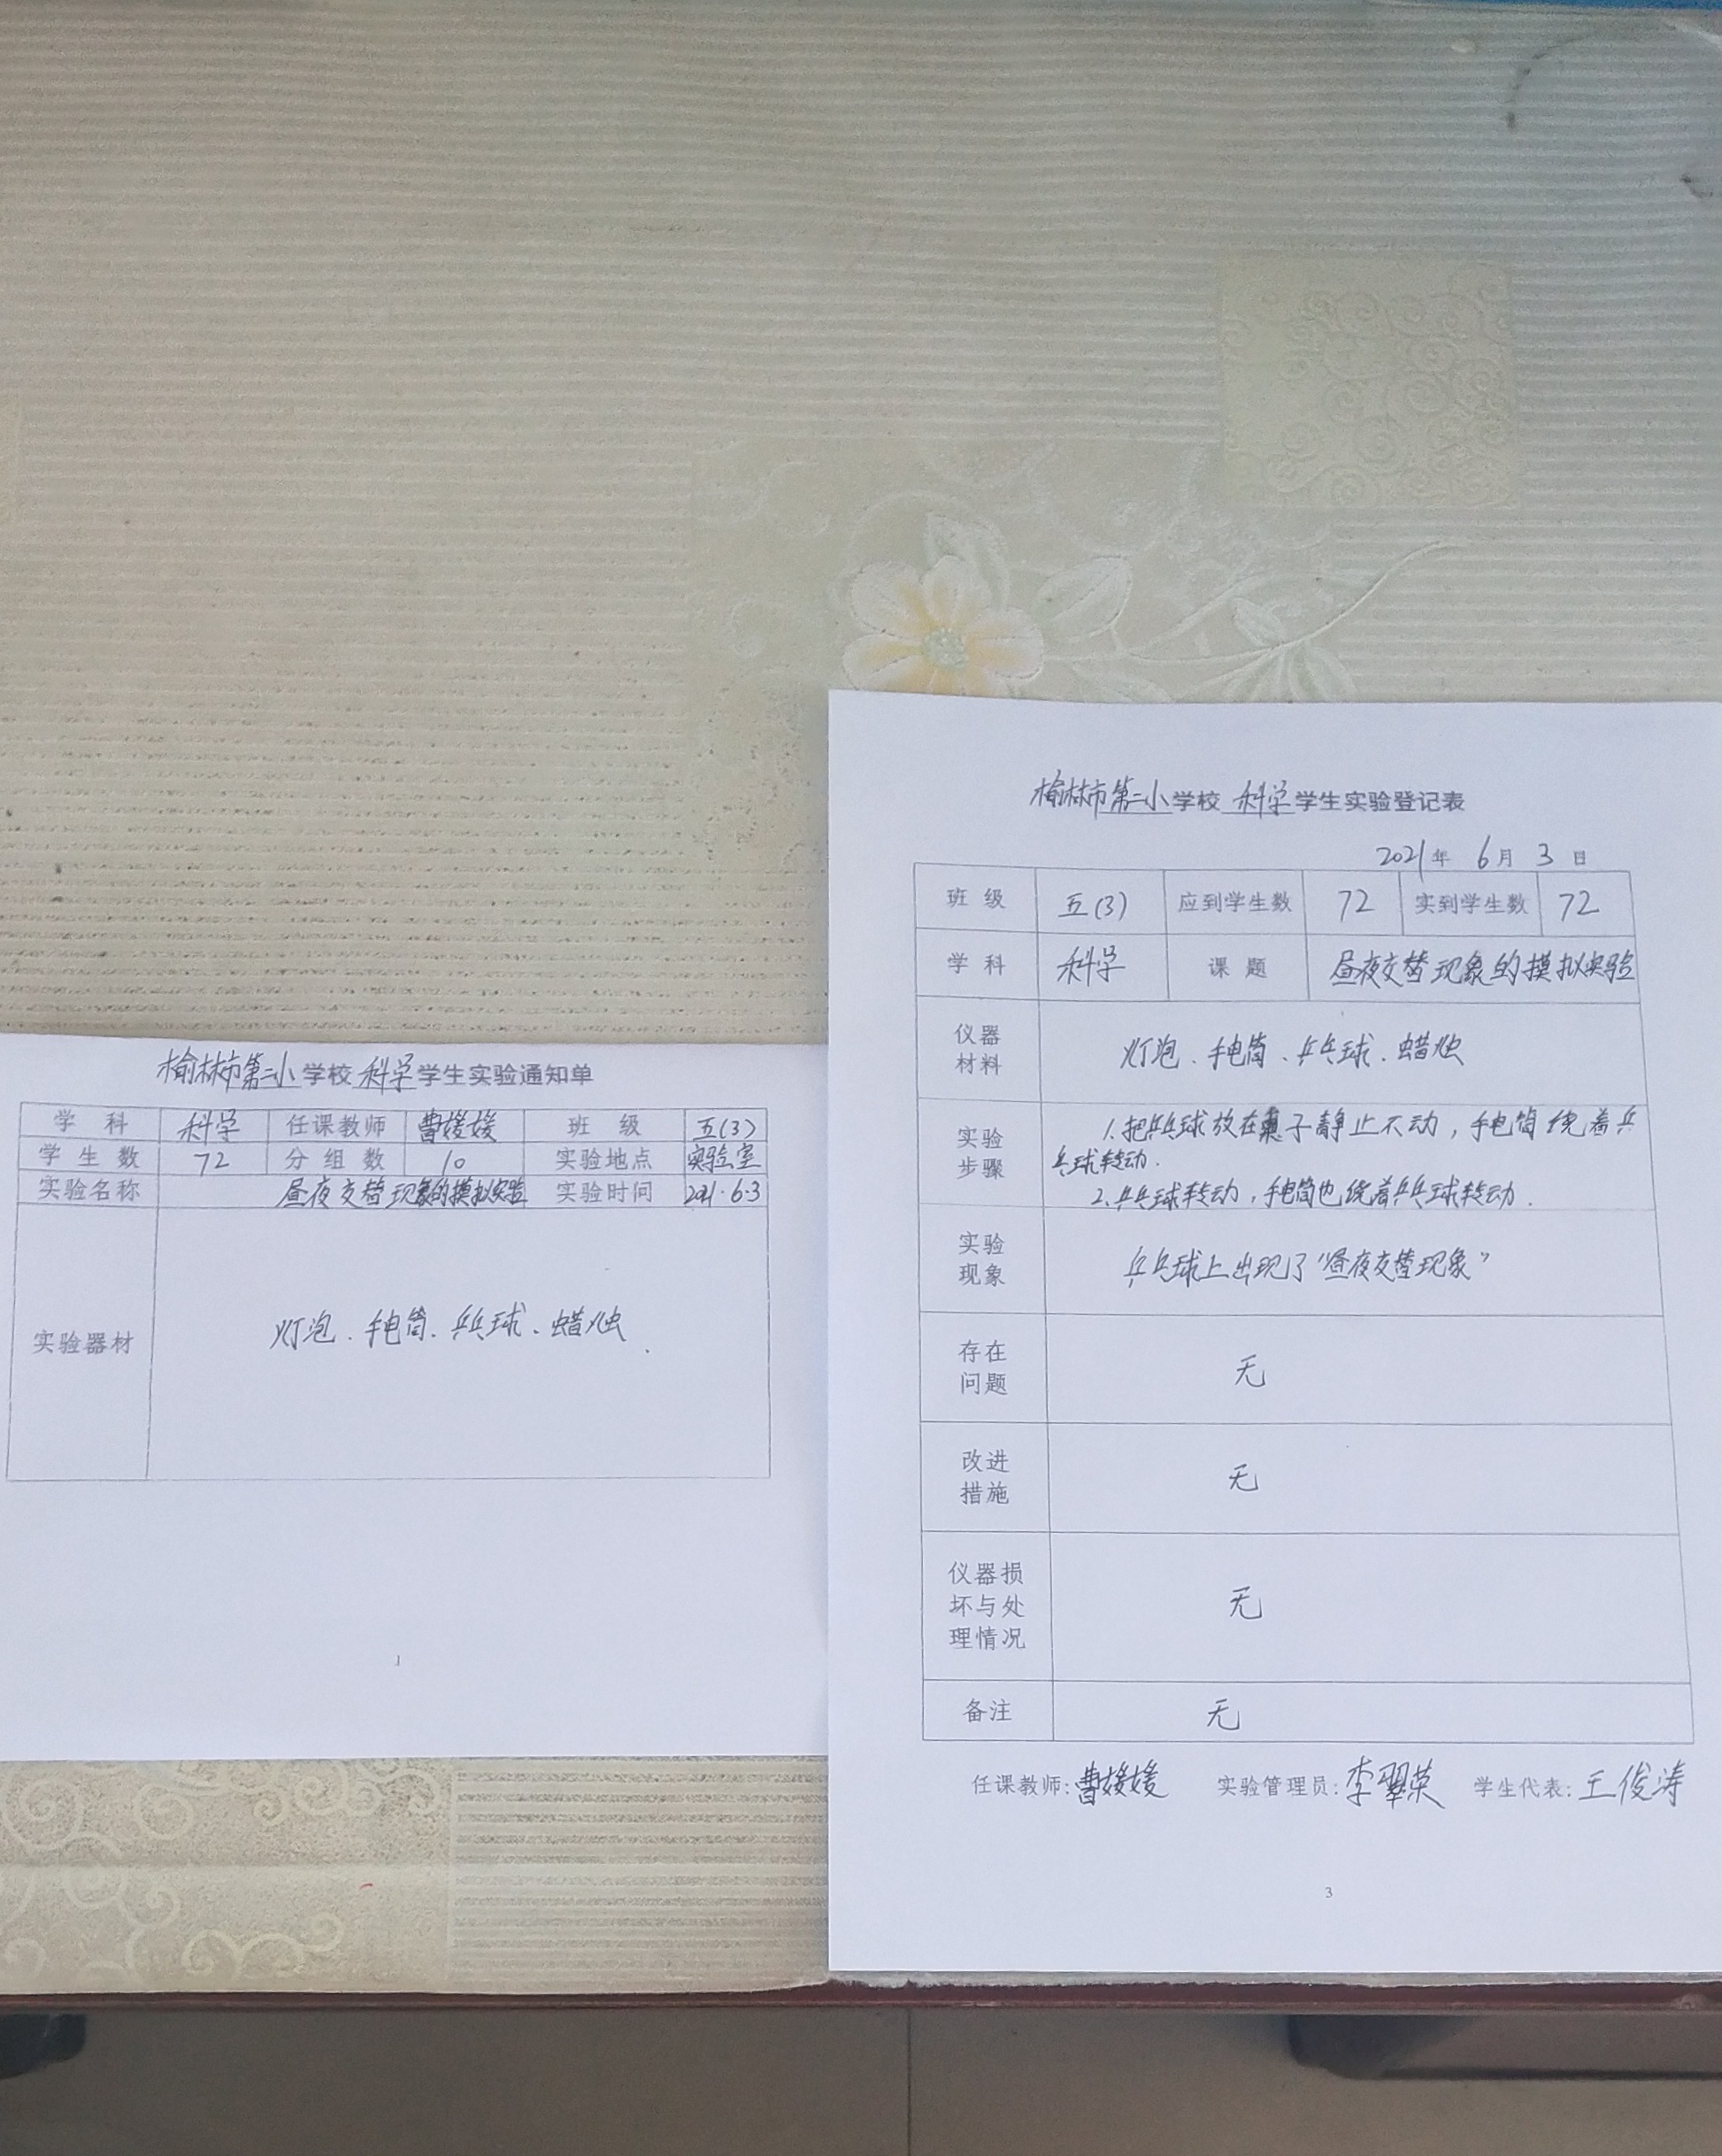 榆林市第二小学校 科学 学生实验通知单
学 科 科学 任课教师 曹媛媛 班 级 五(3)
学 生 数 72 分 组 数 10 实验地点 实验室
实验名称 昼夜交替现象的摸拟实验 实验时间 2021·6·3
实验器材 灯泡、手电筒、乒乓球、蜡烛.
1
榆林市第二小学校 科学 学生实验登记表
2021年 6月 3日
班 级 五(3) 应到学生数 72 实到学生数 72
学 科 科学 课 题 昼夜交替现象的摸拟实验
仪器
材料
灯泡、手电筒、乒乓球、蜡烛
实验
步骤
1.把乒乓球放在桌子静止不动，手电筒绕着乒
乓球转动.
2.乒乓球转动，手电筒也绕着乒乓球转动.
实验
现象
乒乓球上出现了“昼夜交替现象”
存在
问题
无
改进
措施
无
仪器损
坏与处
理情况
无
备注 无
任课教师:曹媛媛 实验管理员:李翠荣 学生代表:王俊涛
3